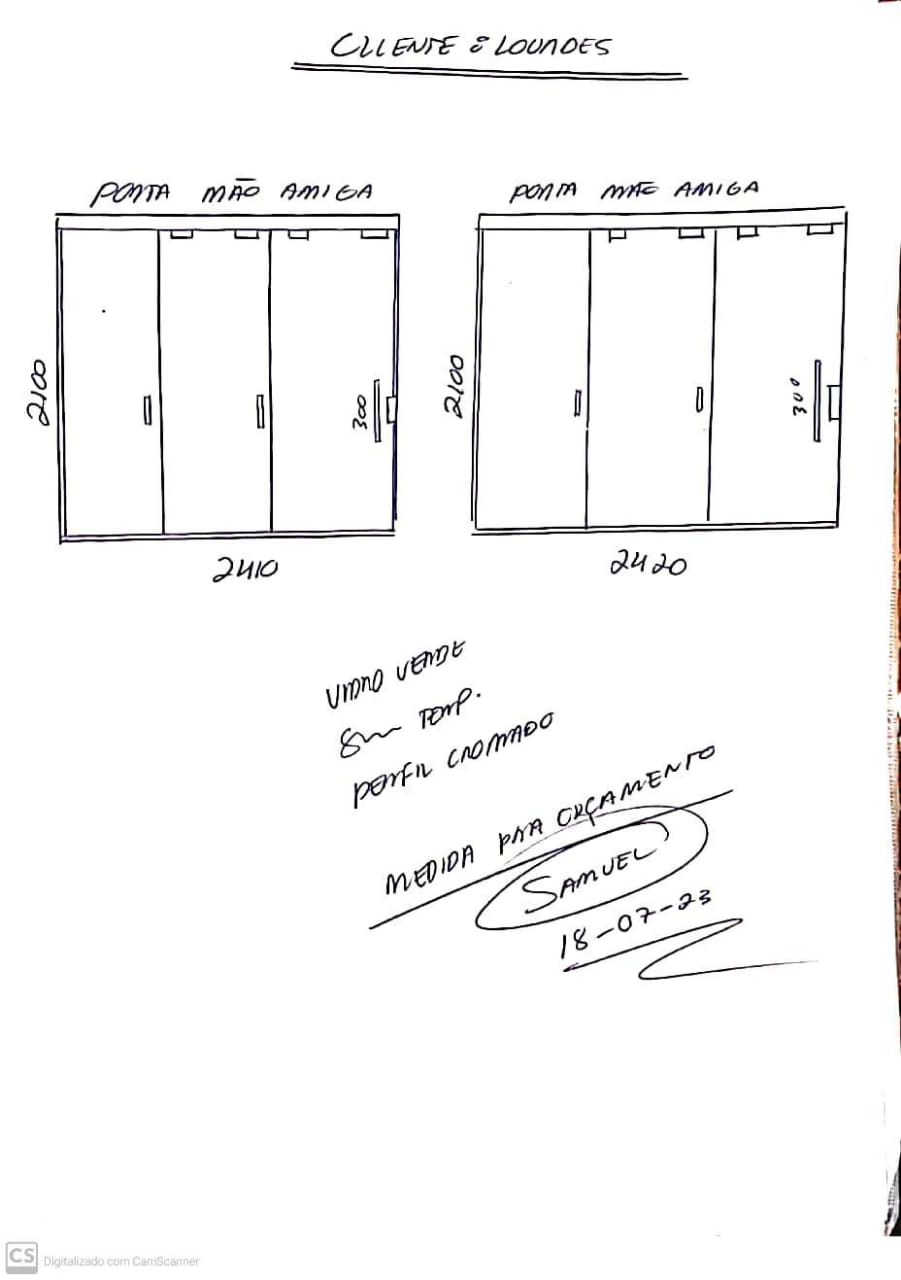 CLIENTE: LOURDES
PORTA MÃO AMIGA
2100
300
2410
PORTA MÃO AMIGA
2100
300
2420
VIDRO VERDE
8mm TEMP.
PERFIL CROMADO
MEDIDA PARA ORÇAMENTO
SAMUEL
18-07-23
CS Digitalizado com CamScanner